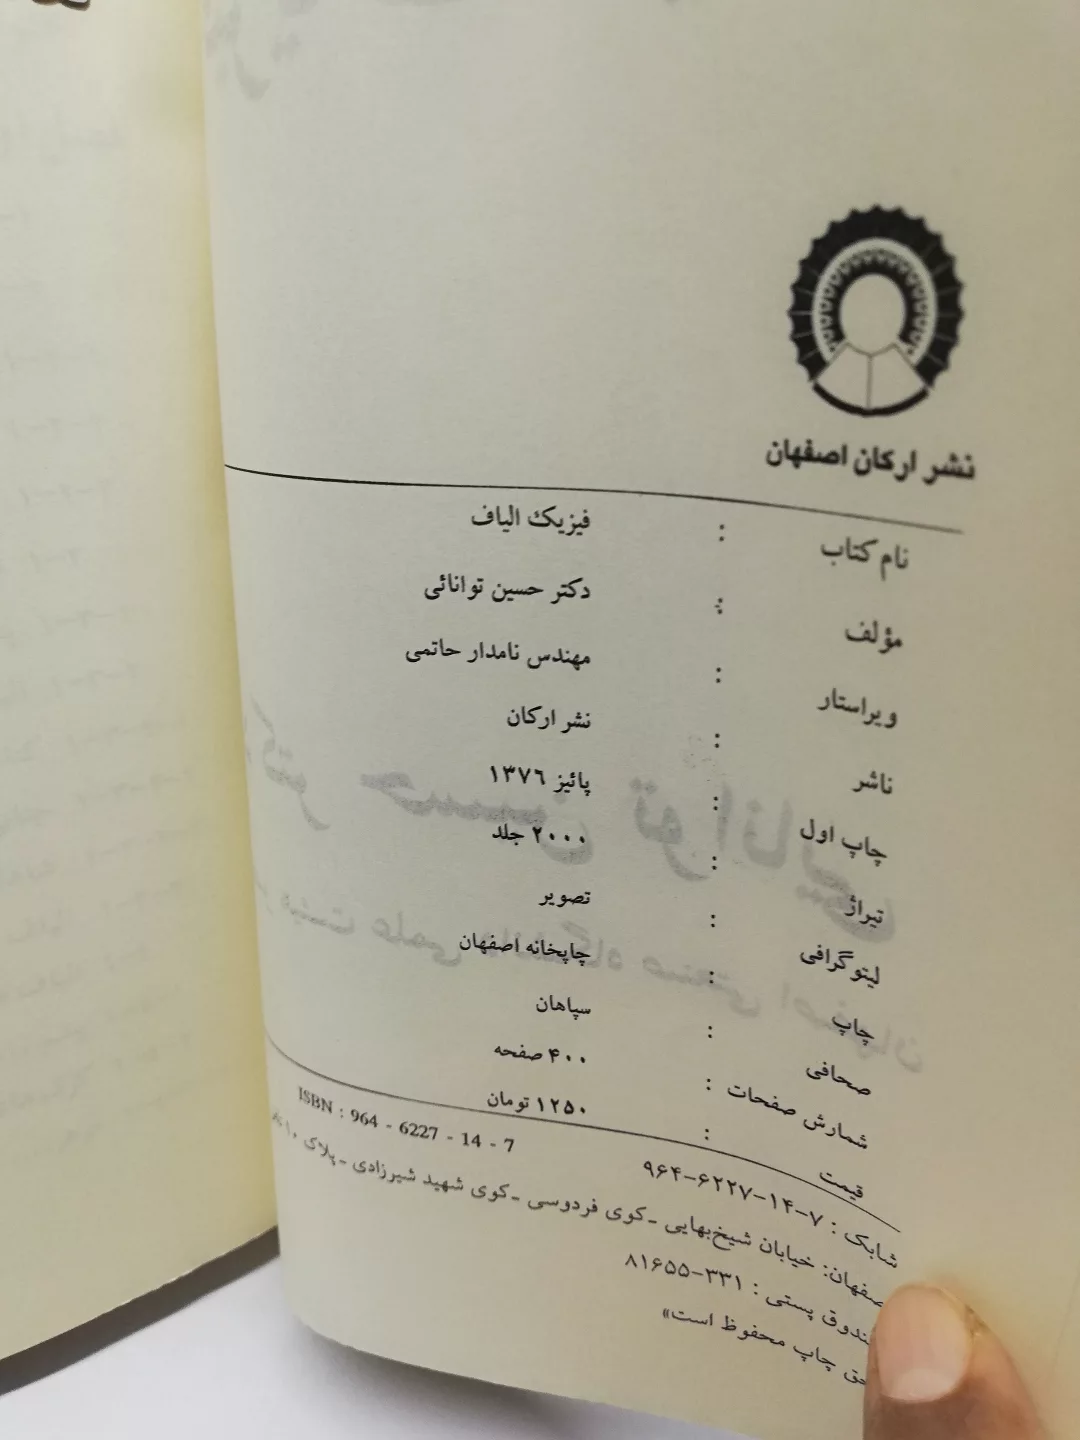 نشر ارکان اصفهان
نام کتاب : فیزیک الیاف
مؤلف : دکتر حسین توانائی
ویراستار : مهندس نامدار حاتمی
ناشر : نشر ارکان
چاپ اول : پائیز ۱۳۷۶
تیراژ : ۲۰۰۰ جلد
لیتوگرافی : تصویر
چاپ : چاپخانه اصفهان
صحافی : سپاهان
شمارش صفحات : ۴۰۰ صفحه
قیمت : ۱۲۵۰ تومان
شابک : ۷-۱۴-۶۲۲۷-۹۶۴ ISBN : 964 - 6227 - 14 - 7
خیابان شیخ‌بهایی - کوی فردوسی - کوی شهید شیرزادی - پلاک ۱۰
پستی : ۳۳۱-۸۱۶۵۵
چاپ محفوظ است»